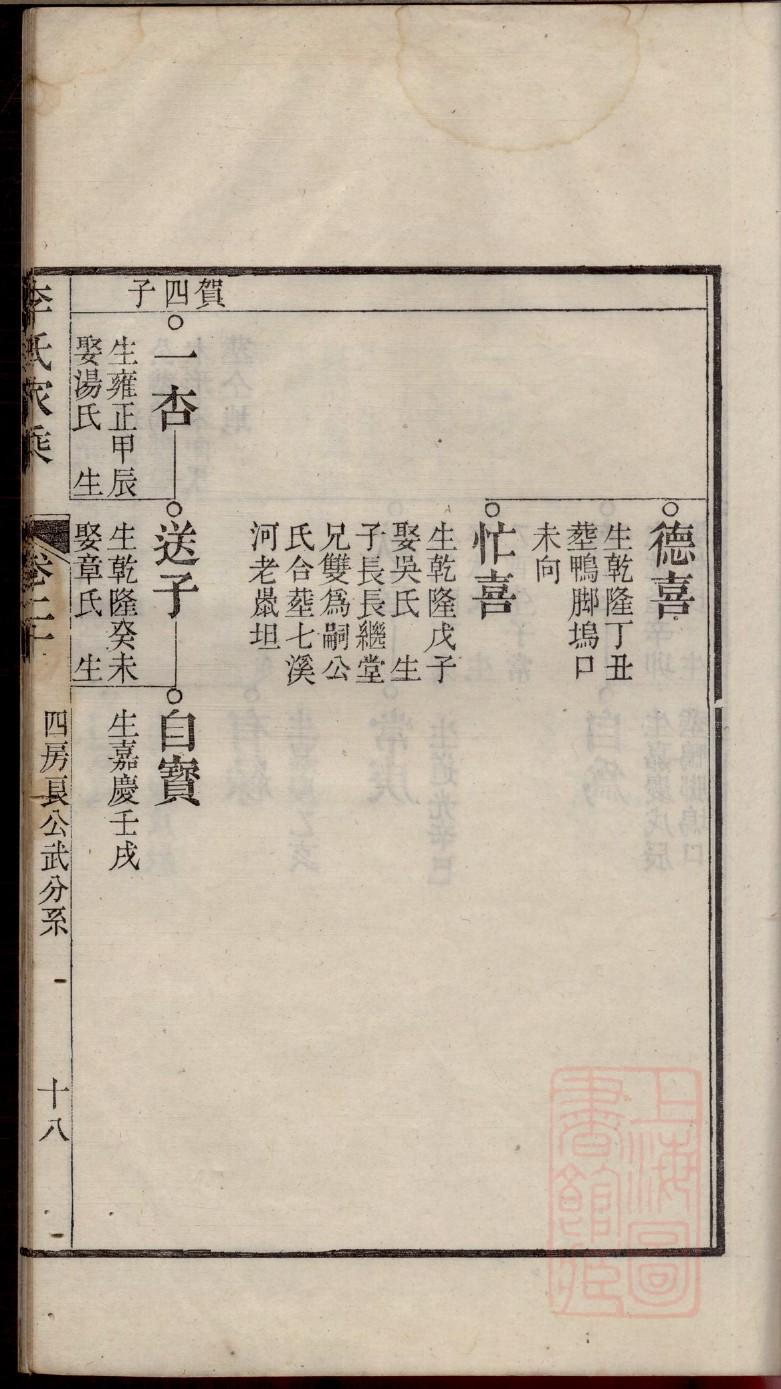 德喜
生乾隆丁丑
塟鴨脚塢口
未向
忙喜
生乾隆戊子
娶吳氏 生
子長長繼堂
兄雙爲嗣公
氏合塟七溪
河老鼡坦
賀四子
一杏
生雍正甲辰
娶湯氏 生
送子
生乾隆癸未
娶章氏 生
自寶
生嘉慶壬戌
李氏家乘
卷二十
四房良公武分系
十八
上海圖
書館藏